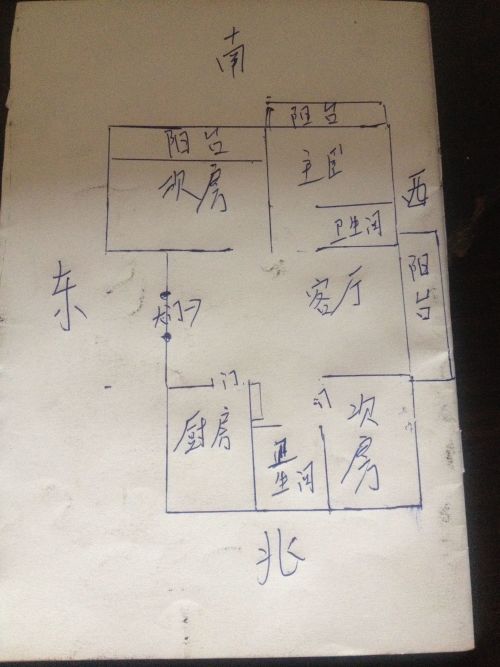 南
阳台
阳台
次房
主卧
西
卫生间
东
客厅
阳台
大门
门
门
厨房
卫生间
次房
北